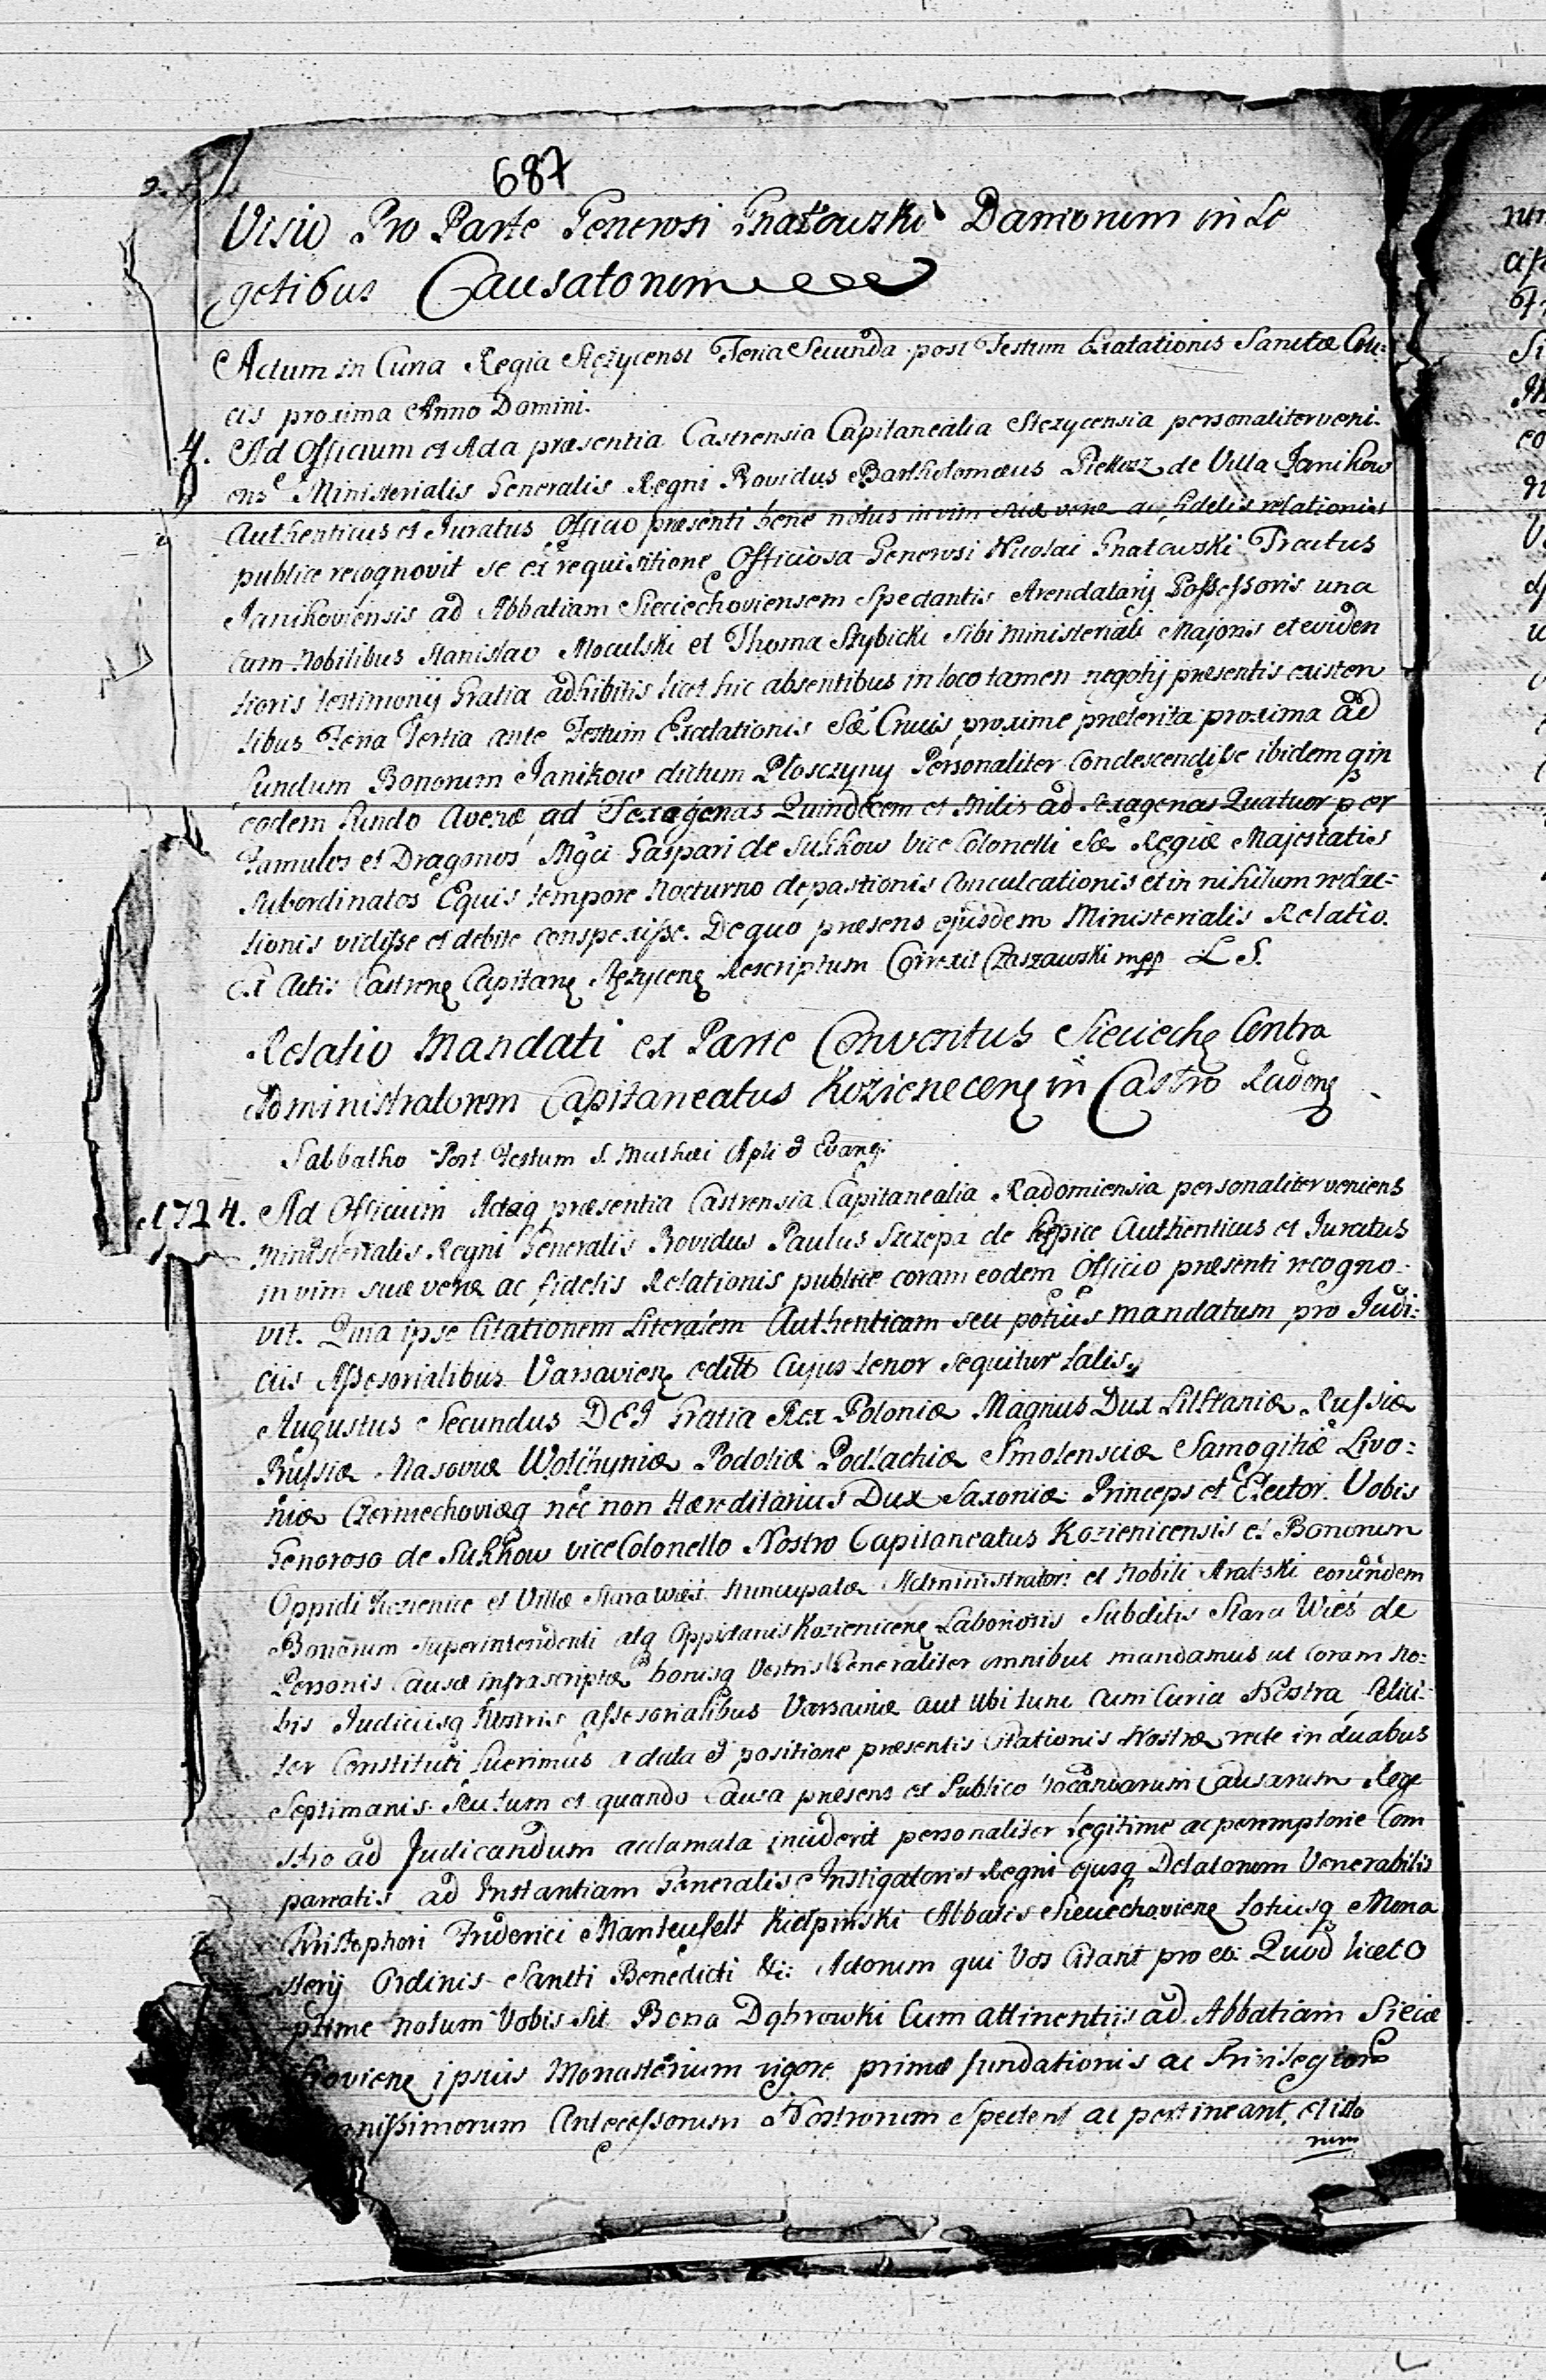 687
Visio Pro Parte Generosi Gnatowski Damnorum in Se
getibus Causatorum
Actum in Curia Regia Stężycensi Feria Secunda post Festum Exaltationis Sanctæ Cru:
cis proxima Anno Domini.
4. Ad Officium et Acta præsentia Castrensia Capitanealia Stezycensia personaliter veni-
ens Ministerialis Generalis Regni Providus Bartholomæus de Villa Janikow
Authenticus et Juratus Officio præsenti bene notus in vim suæ veræ ac fidelis relationis
publice recognovit se ex requisitione Officiosa Generosi Nicolai Gnatowski Tractus
Janikoviensis ad Abbatiam Sieciechoviensem Spectantis Arendatarij Possessoris una
cum Nobilibus Stanislao Moculski et Thoma Skybicki sibi ministeriali Majoris et eviden
tioris testimonij Gratia adhibitis licet hic absentibus in loco tamen negotij præsentis existen
tibus Feria Tertia ante Festum Exaltationis Sæ Crucis proxime præterita proxima ad
fundum Bonorum Janikow dictum Płosczyny Personaliter Condescendisse ibidem in
eodem fundo Avenæ ad Sexagenas Quindecem et Milis ad sexagenas Quatuor per
Famulos et Dragonos Mgci Gaspari de Sukkow Vice Colonelli Sæ Regiæ Majestatis
Subordinatos Equis tempore Nocturno depastionis Conculcationis et in nihilum redac-
tionis vidisse et debite conspexisse. De quo præsens ejusdem Ministerialis Relatio.
Ex Actis Castren Capitan Stężycen Rescriptum Correxit Czaszawski mpp L S.
Relatio Mandati ex Parte Conventus Sieciech Contra
Administratorem Capitaneatus Kozienecen in Castro Radom
Sabbatho Post Festum S. Mathæi Apli & Evang:
1724. Ad Officium Actaq præsentia Castrensia Capitanealia Radomiensia personaliter veniens
Ministerialis Regni Generalis Providus Paulus Szczepa de Authenticus et Juratus
in vim suæ veræ ac fidelis Relationis publice coram eodem Officio præsenti recogno-
vit. Quia ipse Citationem Literalem Authenticam seu potius mandatum pro Judi:
ciis Assesorialibus Varsavien editt Cujus tenor sequitur talis
Augustus Secundus DEI Gratia Rex Poloniæ Magnus Dux Litthaniæ Russiæ
Prussiæ Masoviæ Wolchyniæ Podoliæ Podlachiæ Smolensciæ Samogitiæ Livo:
niæ Czerniechoviæq nec non Hæreditarius Dux Saxoniæ Princeps et Elector. Vobis
Generoso de Sukkow vice Colonello Nostro Capitaneatus Kozienicensis et Bonorum
Oppidi Kozienice et Villæ Stara Wies Nuncupatæ Administratori et Nobili eorundem
Bonorum Superintendenti atq Oppidanis Kozienicen Laboriosis Subditis Stara Wies de
Personis Causa infrascripta bonisq Vestris Generaliter omnibus mandamus ut Coram No:
bis Judiciisq Nostris assesorialibus Varsaviæ aut ubi tunc cum Curia Nostra felici-
ter Constituti fuerimus a data & positione præsentis Citationis Nostræ recte in duabus
Septimanis futurum et quando Causa præsens ex Publico vocandarum Causarum Rege
stro ad Judicandum acclamata inciderit personaliter legitime ac peremptorie Com
pareatis ad Instantiam Generalis Instigatoris Regni ejusq Delatorum Venerabilis
Christophori Friderici Manteufelt Kiełpinski Abbatis Sieciechovien totiusq Mona
sterij Ordinis Sancti Benedicti &: Actorum qui Vos Citant pro eo: Quod licet o
ptime notum Vobis Sit Bona Dąbrowki Cum attinentiis ad Abbatiam Siecie
chovien ipsius Monasterium vigore primæ fundationis ac Privilegior
nissimorum Antecessorum Nostrorum Spectent ac pertineant, et isto
rum